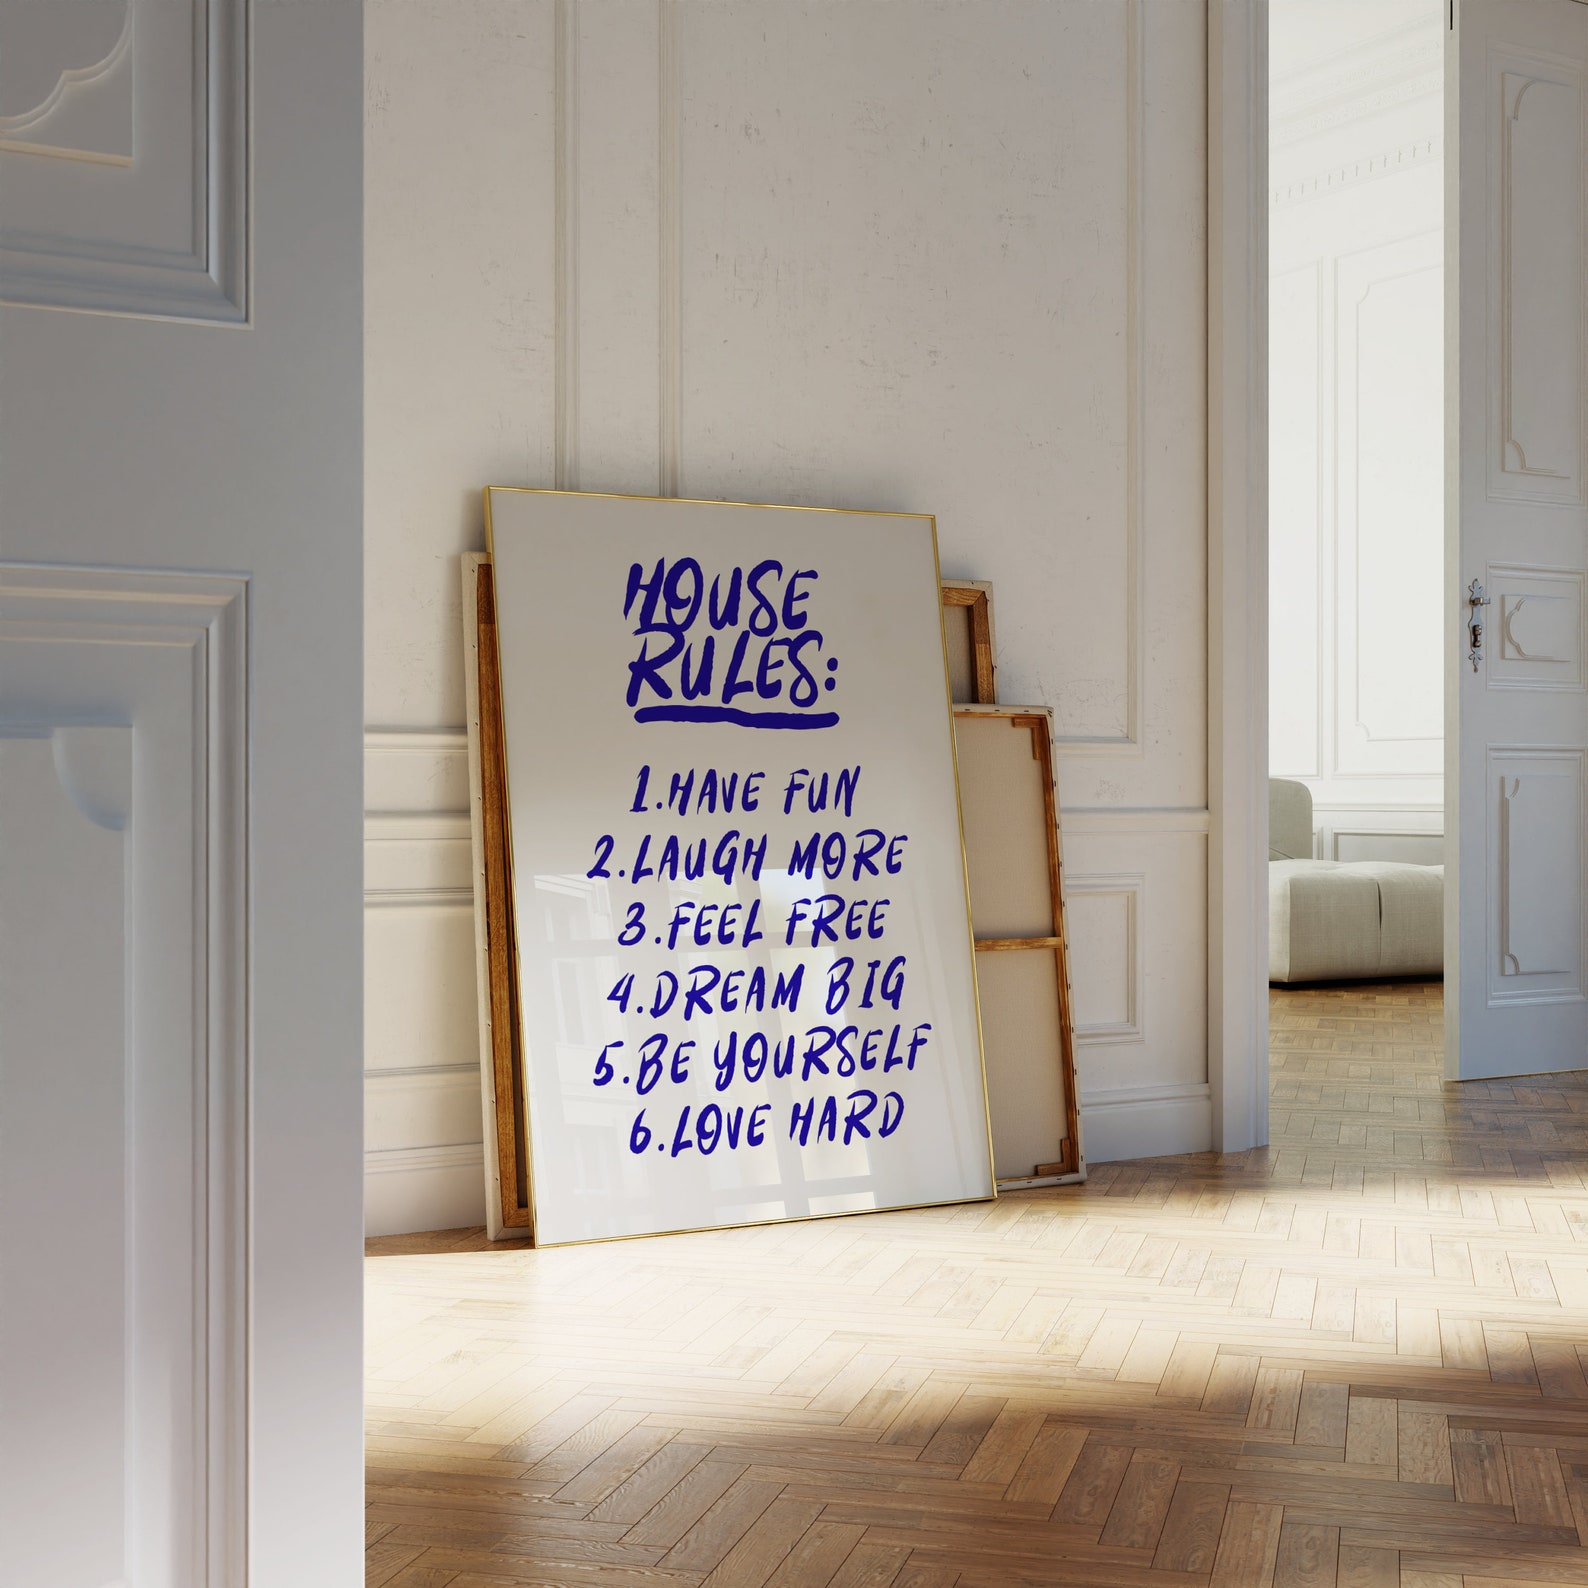 HOUSE
RULES:
1.HAVE FUN
2.LAUGH MORE
3.FEEL FREE
4.DREAM BIG
5.BE YOURSELF
6.LOVE HARD